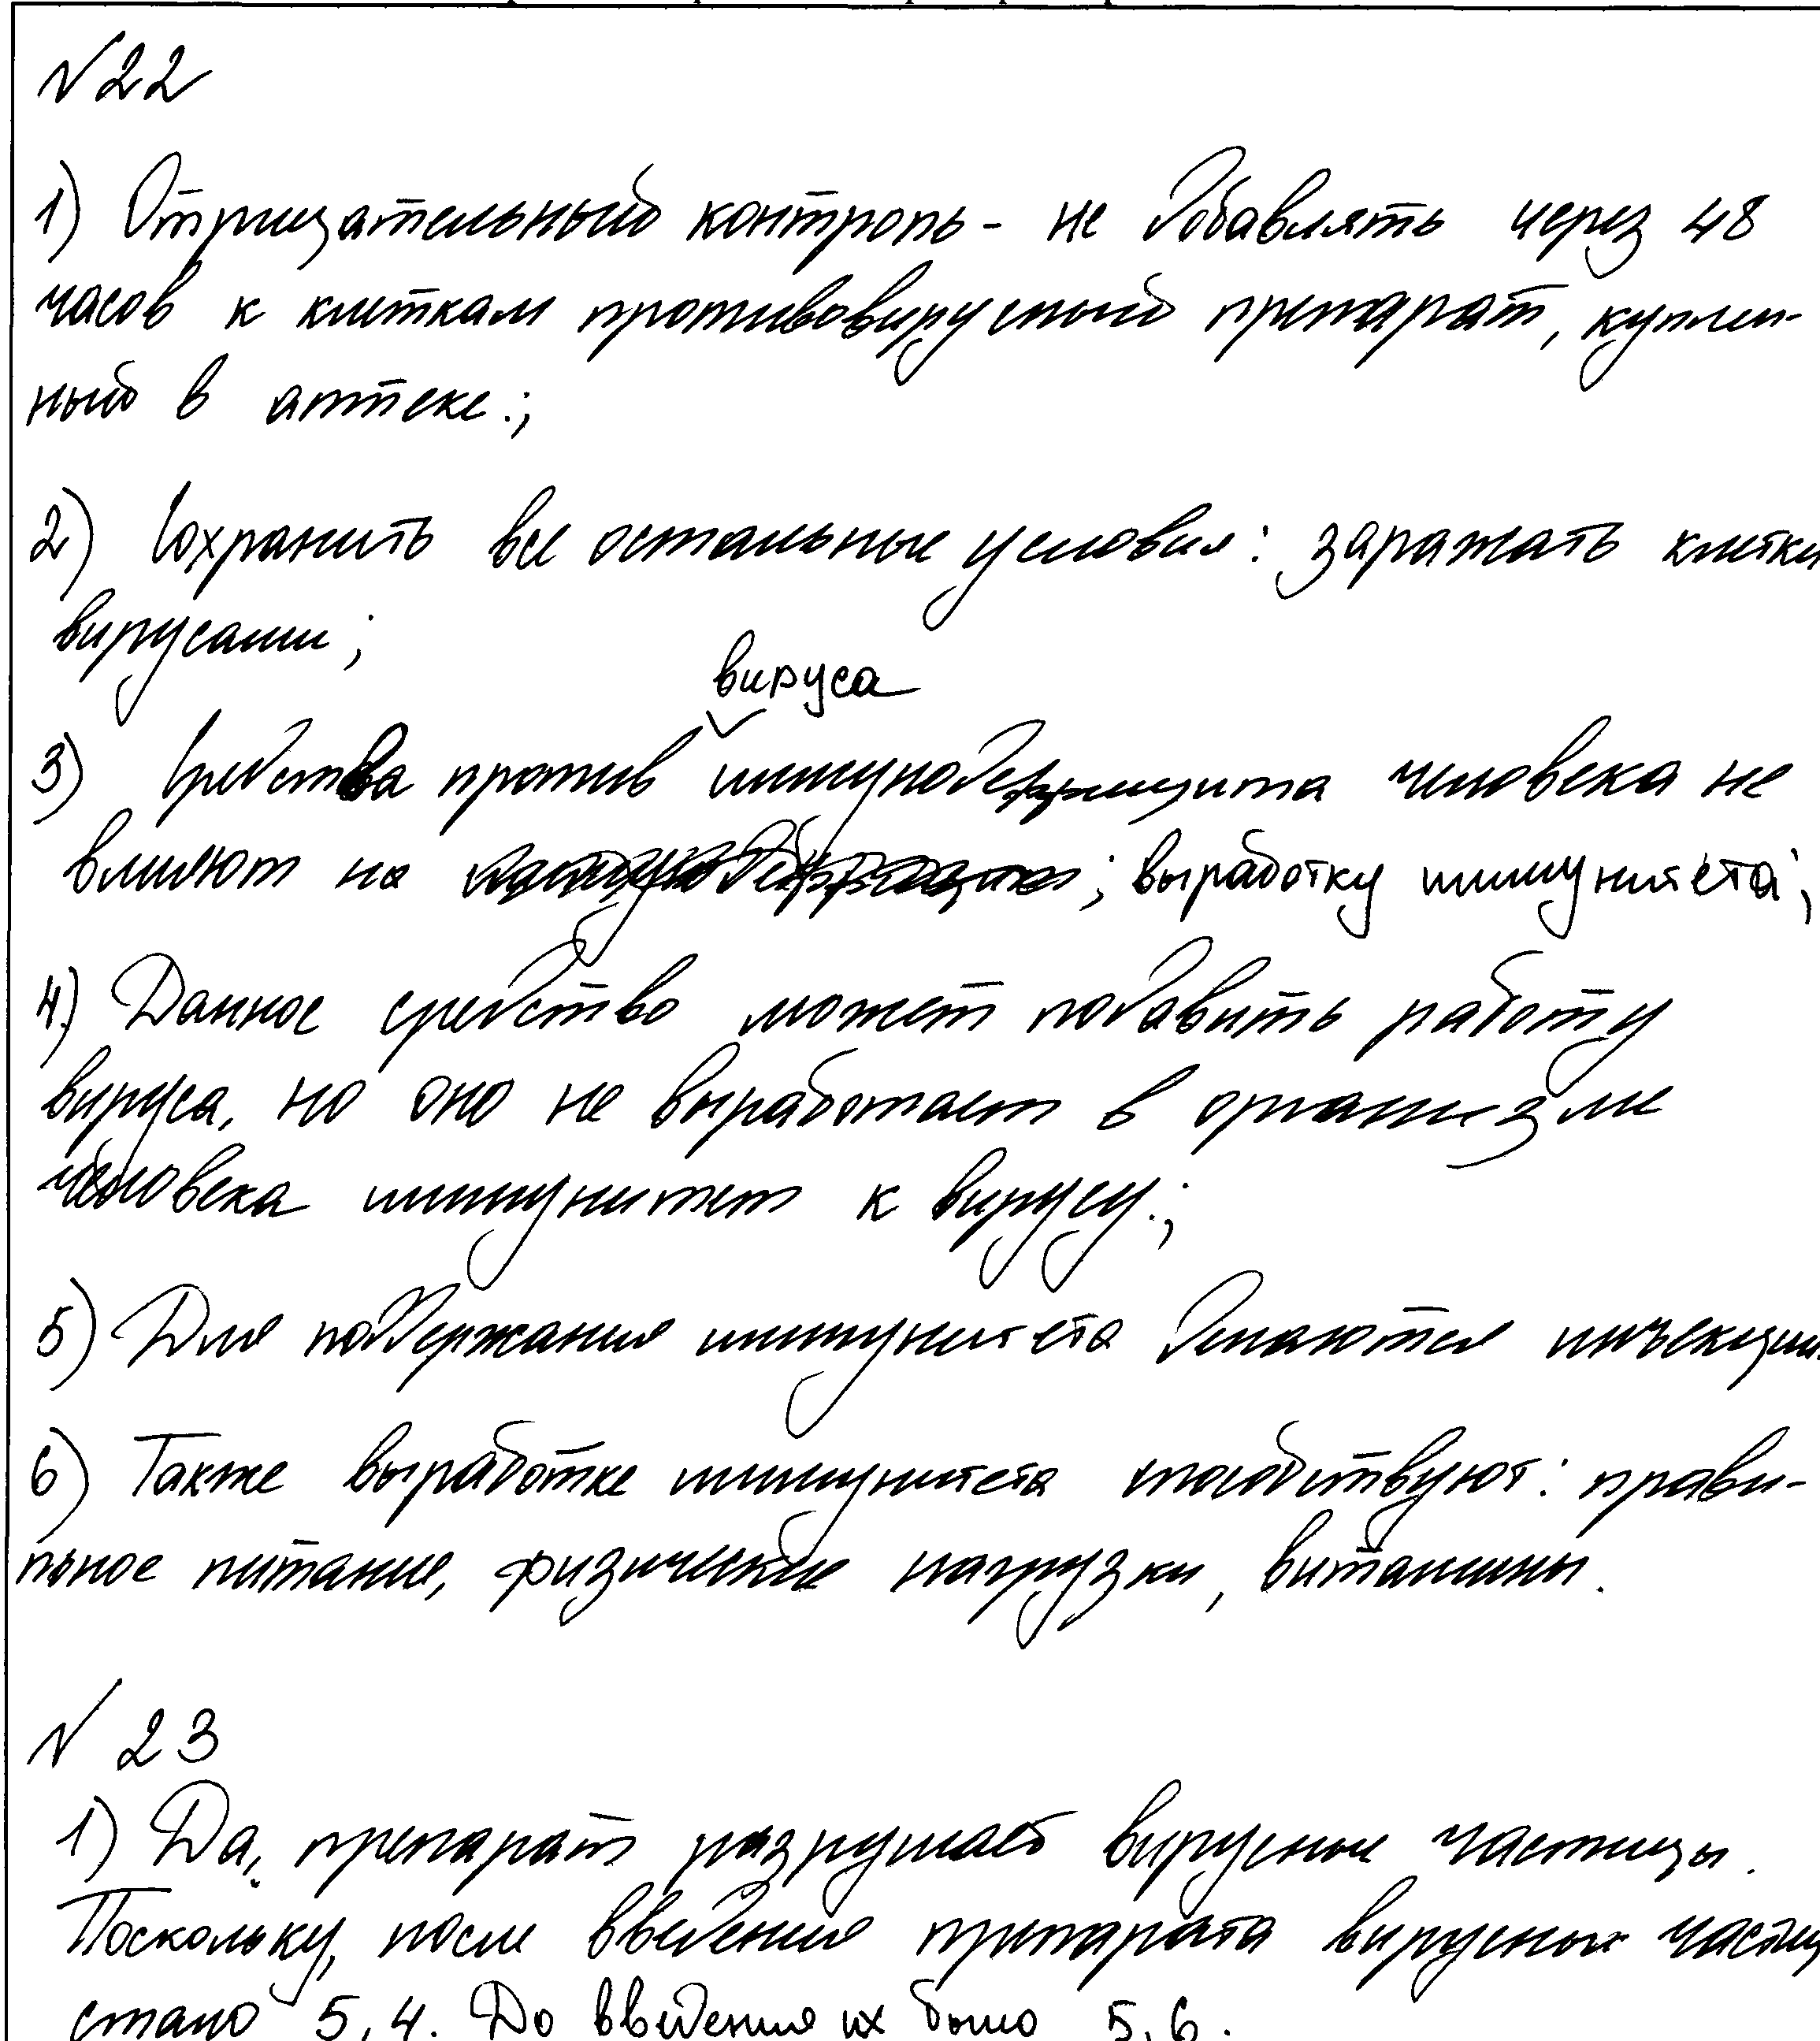 №22
1) Отрицательный контроль - не добавлять через 48
часов к клеткам противовирусный препарат, куплен-
ный в аптеке.;
2) Сохранить все остальные условия: заражать клетки
вирусами;
вируса
3) Средства против иммунодефицита человека не
влияют на ; выработку иммунитета;
4) Данное средство может подавить работу
вируса, но оно не выработает в организме
человека иммунитет к вирусу.;
5) Для поддержания иммунитета делаются инъекции
6) Также выработке иммунитета способствуют: прави-
льное питание, физические нагрузки, витамины.
№ 23
1) Да, препарат разрушает вирусные частицы.
Поскольку, после введения препарата вирусных частиц
стало 5,4. До введения их было 5,6.